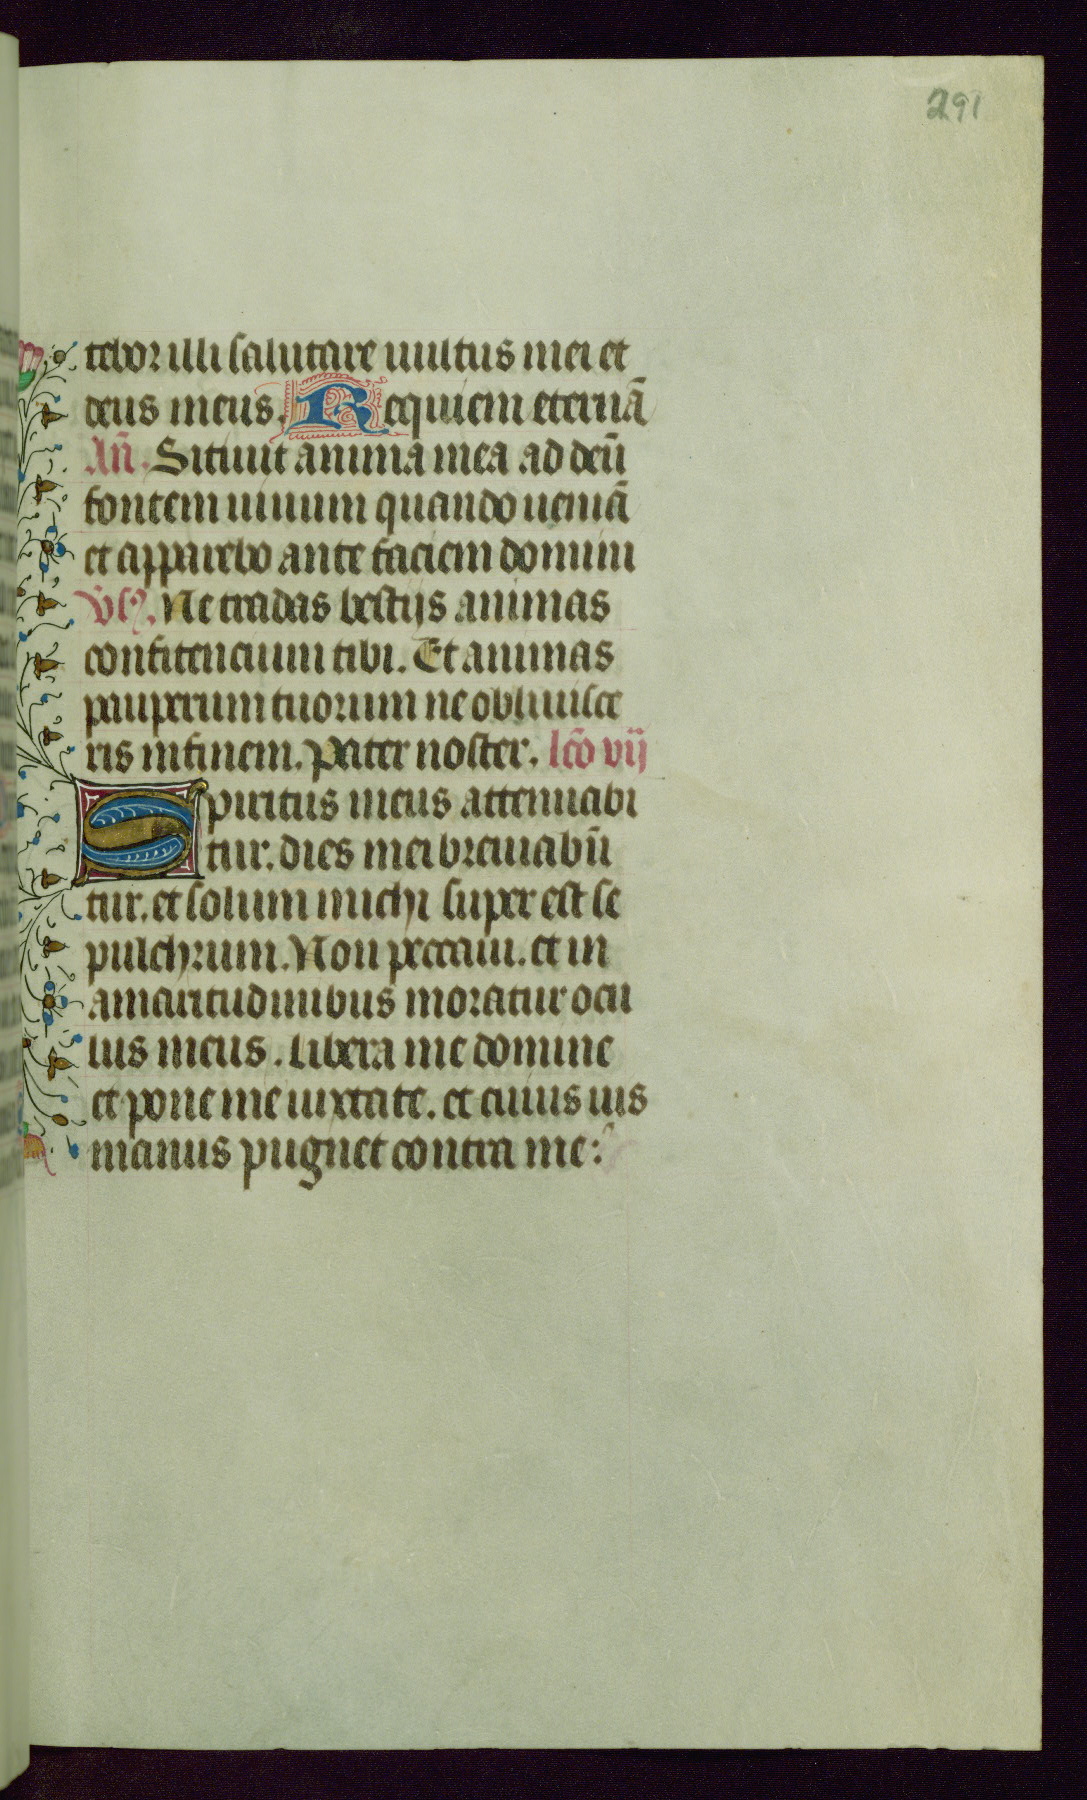 291
tebor illi salutare uultus mei et
deus meus. Requiem eternā
Añ. Sitiuit anima mea ad deū
fontem uiuum quando ueniā
et apparebo ante faciem domini
Vꝰs. Ne tradas bestijs animas
confitencium tibi. Et animas
pauperum tuorum ne obliuisce
ris in finem. Pater noster. lcō vij
Spiritus meus attenuabi
tur. dies mei breuiabū
tur. et solum michi super est se
pulchrum. Non peccaui. et in
amaritudinibus moratur ocu
lus meus. Libera me domine
et pone me iuxta te. et cuius uis
manus pugnet contra me: